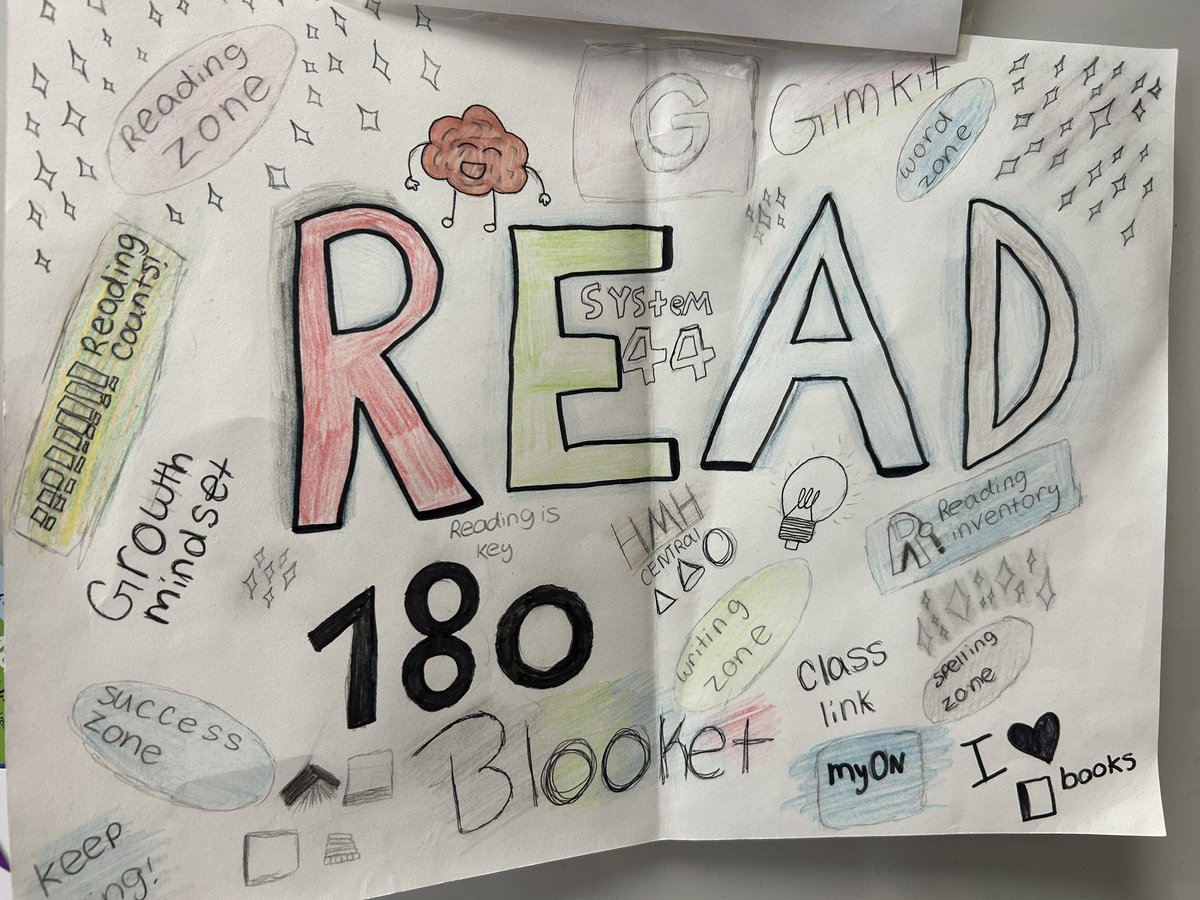 Reading
zone
G
Gimkit
word
zone
READ
System
44
Reading
Counts!
Growth
mindset
Reading is
key
HMH
CENTRAL
Reading
inventory
180
writing
zone
class
link
spelling
zone
success
zone
Blooket
myON
I ♥
books
keep